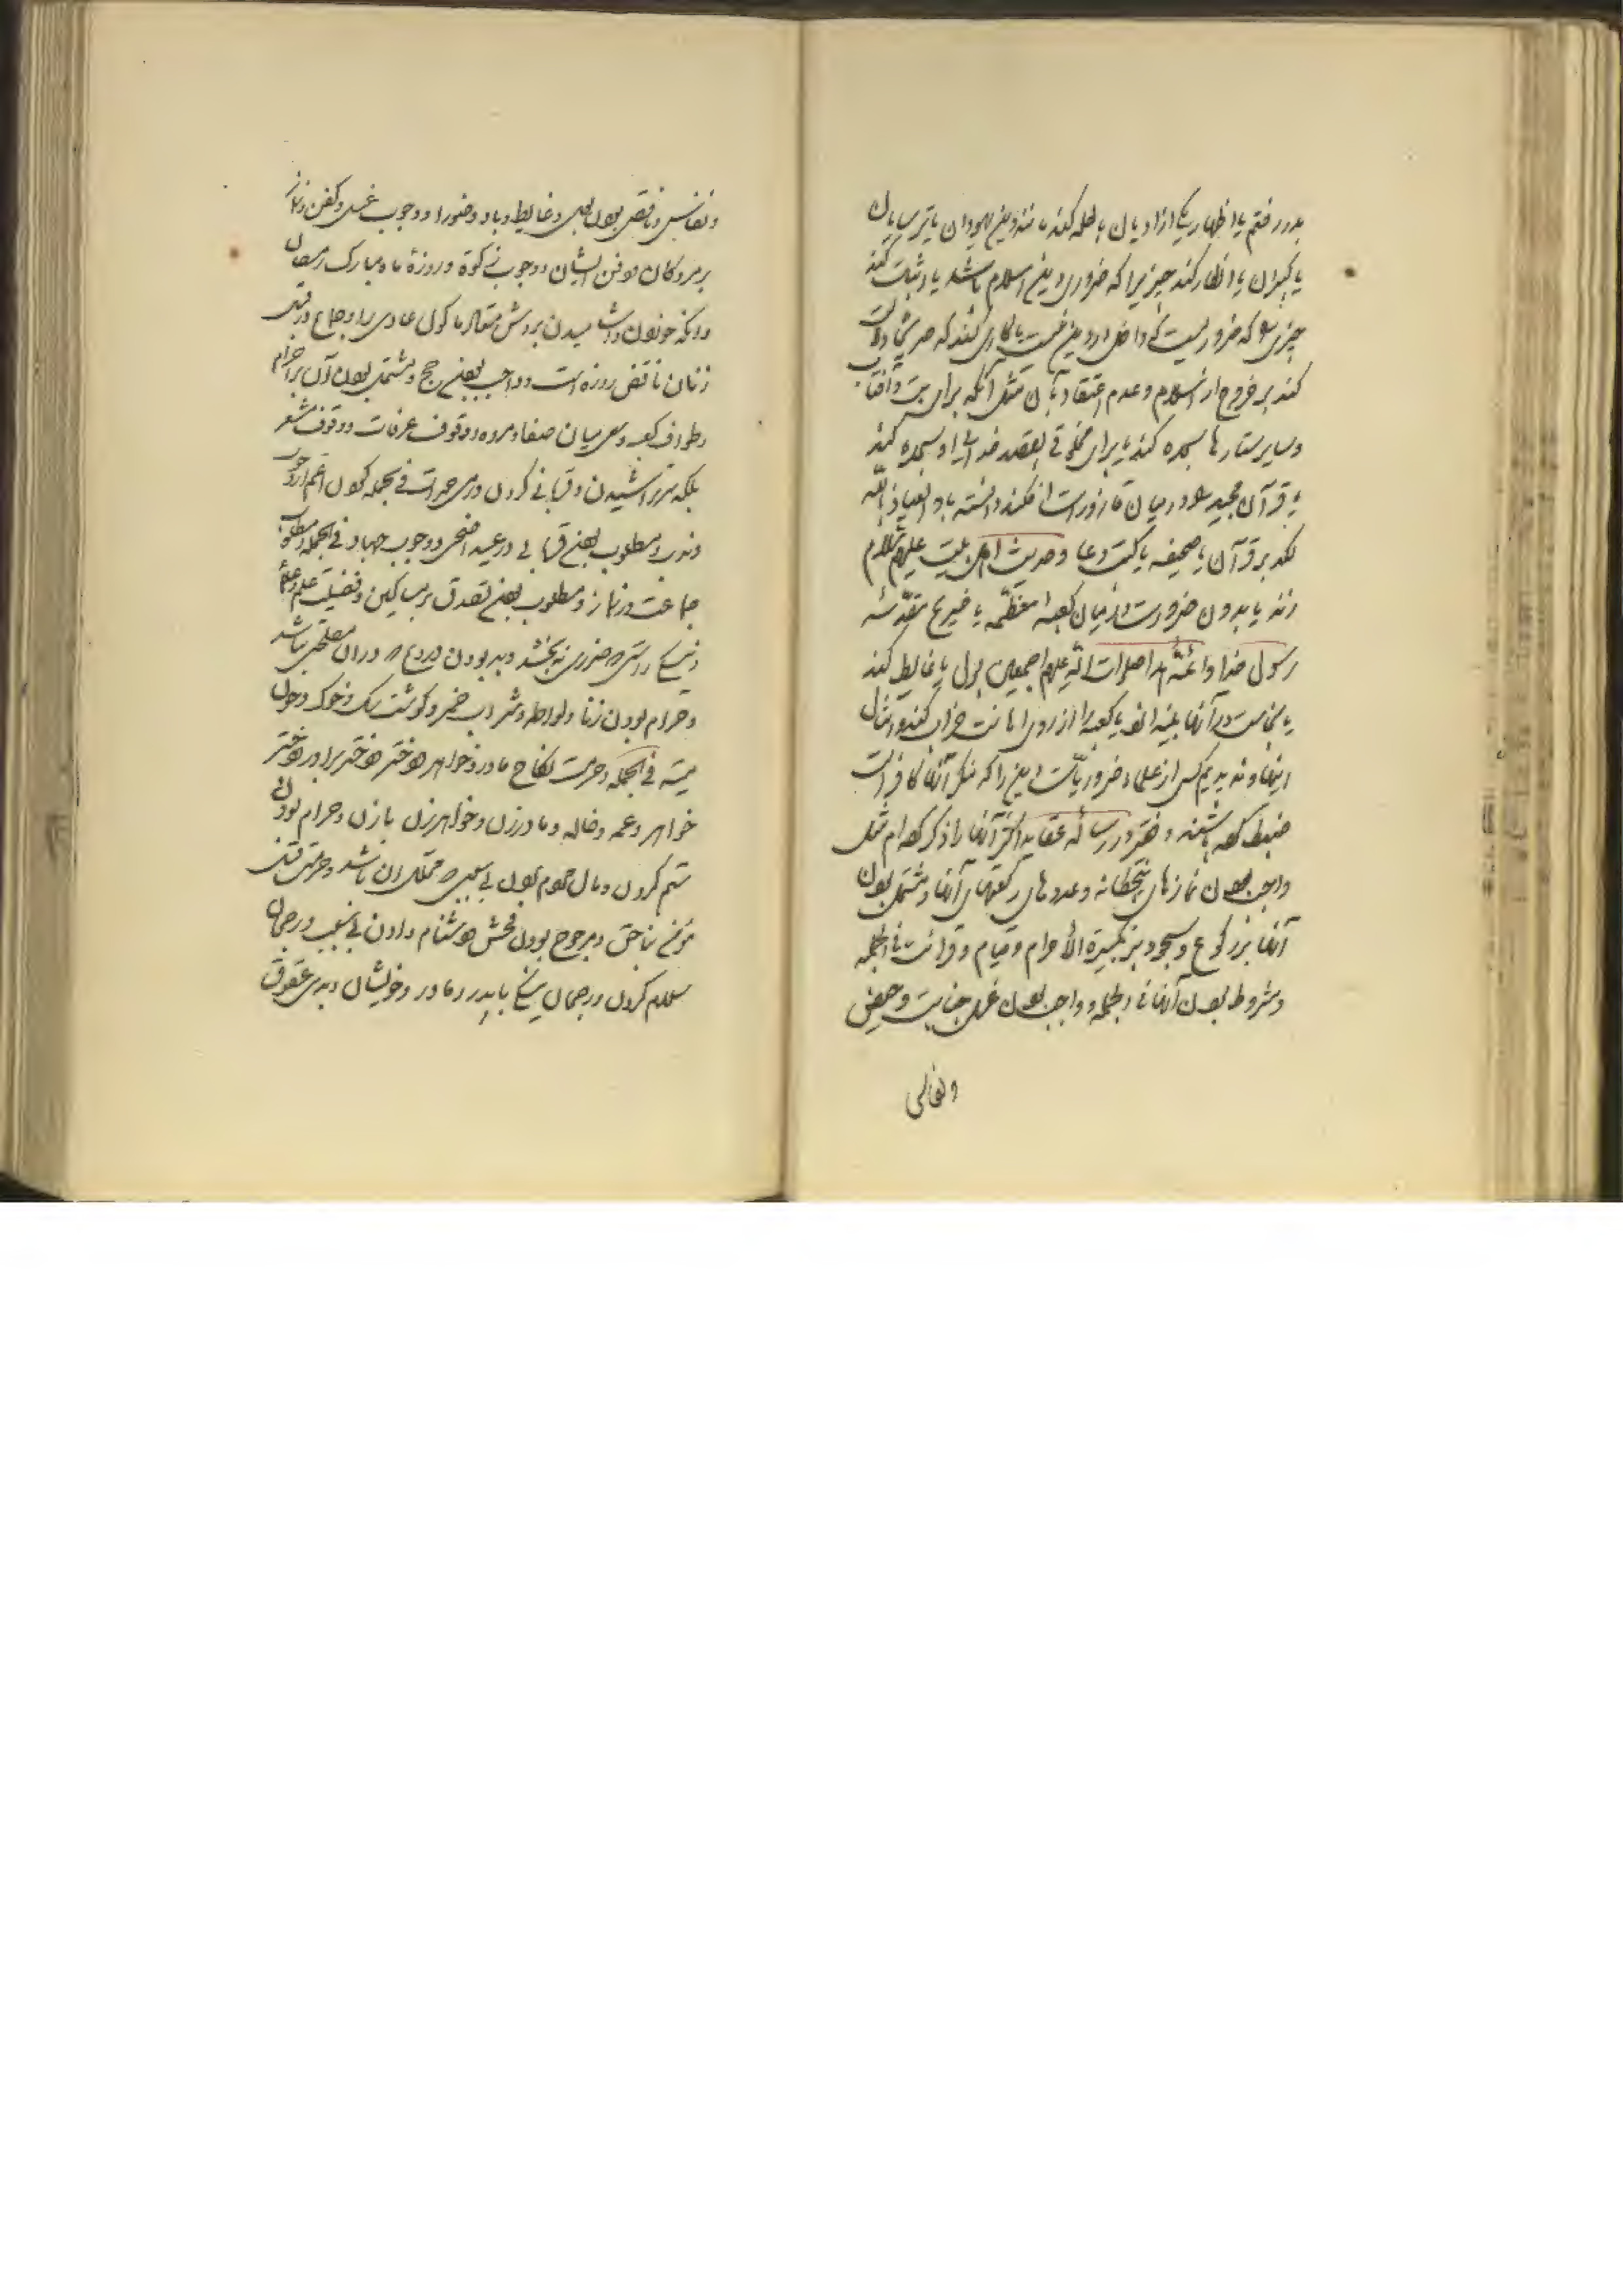 بدر رفتم یا اظهار یکی از ادیان باطله کند مانند دین یهودان یا ترسایان
یا گبران یا انکار کند چیزیرا که ضروری دین اسلام باشد یا اثبات کند
چیزی را که ضروریست که داخل در دین نیست یا کاری کند که صریحا دلالت
کند بر خروج از اسلام و عدم اعتقاد بآن مثل آنکه برای بت و آفتاب
و سایر ستارها سجده کند یا برای مخلوقی بقصد خدائی او سجده کند
یا قرآن مجید را در میان قاذورات افکند دانسته یا والعیاذ بالله
لگد بر قرآن یا صحیفه یا کتب دعا و حدیث اهل بیت علیهم السلام
زند یا بدون ضرورت در میان کعبه معظمه یا ضریح مقدسه
رسول خدا و ائمه هدا صلوات الله علیهم اجمعین بول یا غایط کند
یا نجاست در آنها بیندازد یا کعبه را از روی اهانت خراب کند و امثال
اینها و ندیدیم کسی از علماء ضروریات دین را که منکر آنها کافر است
ضبط کرده باشند و فقیر در رساله عقاید اکثر آنها را ذکر کرده ام مثل
واجب بودن نمازهای پنجگانه و عددهای رکعتهای آنها و مشتمل بودن
آنها بر رکوع و سجود و بر تکبیرة الاحرام و قیام و قرائت فی الجمله
و مشروط بودن آنها فی الجمله و واجب بودن غسل جنابت و حیض
و نفاس
و نفاس و ناقض بودن بول و غایط و باد وضو را و وجوب غسل و کفن و نماز
بر مردگان و دفن ایشان و وجوب زکوة و روزۀ ماه مبارک رمضان
و آنکه خوردن و آشامیدن بروش متعارف ماکول عادی را و جماع در قبل
زنان ناقض روزه است و واجب بودن حج و مشتمل بودن آن بر احرام
و طواف کعبه و سعی میان صفا و مروه و وقوف عرفات و وقوف مشعر
بلکه سر تراشیدن و قربانی کردن و رمی جمرات فی الجمله که آن اعم از وجوب
و ندب و مطلوب بودن قربانی در عید اضحی و وجوب جهاد فی الجمله و مطلوب
جماعت در نماز و مطلوب بودن تصدق بر مساکین و فضیلت علم و علماء
و نیکی راستی که ضرری نه بخشد و بد بودن دروغی که در آن مصلحتی نباشد
و حرام بودن زنا و لواطه و شراب خمر و گوشت سگ و خوک و خون
میته فی الجمله و حرمت نکاح مادر و خواهر و دختر و دختر برادر و دختر
خواهر و عمه و خاله و مادر زن و خواهر زن با زن و حرام بودن
ستم کردن و مال مردم بردن بی سببی که مملک آن باشد و حرمت قتل
مؤمن بناحق و مرجوح بودن فحش و دشنام دادن بی سبب و رجحان
سلام کردن و رجحان نیکی با پدر و مادر و خویشان و بدی عقوق